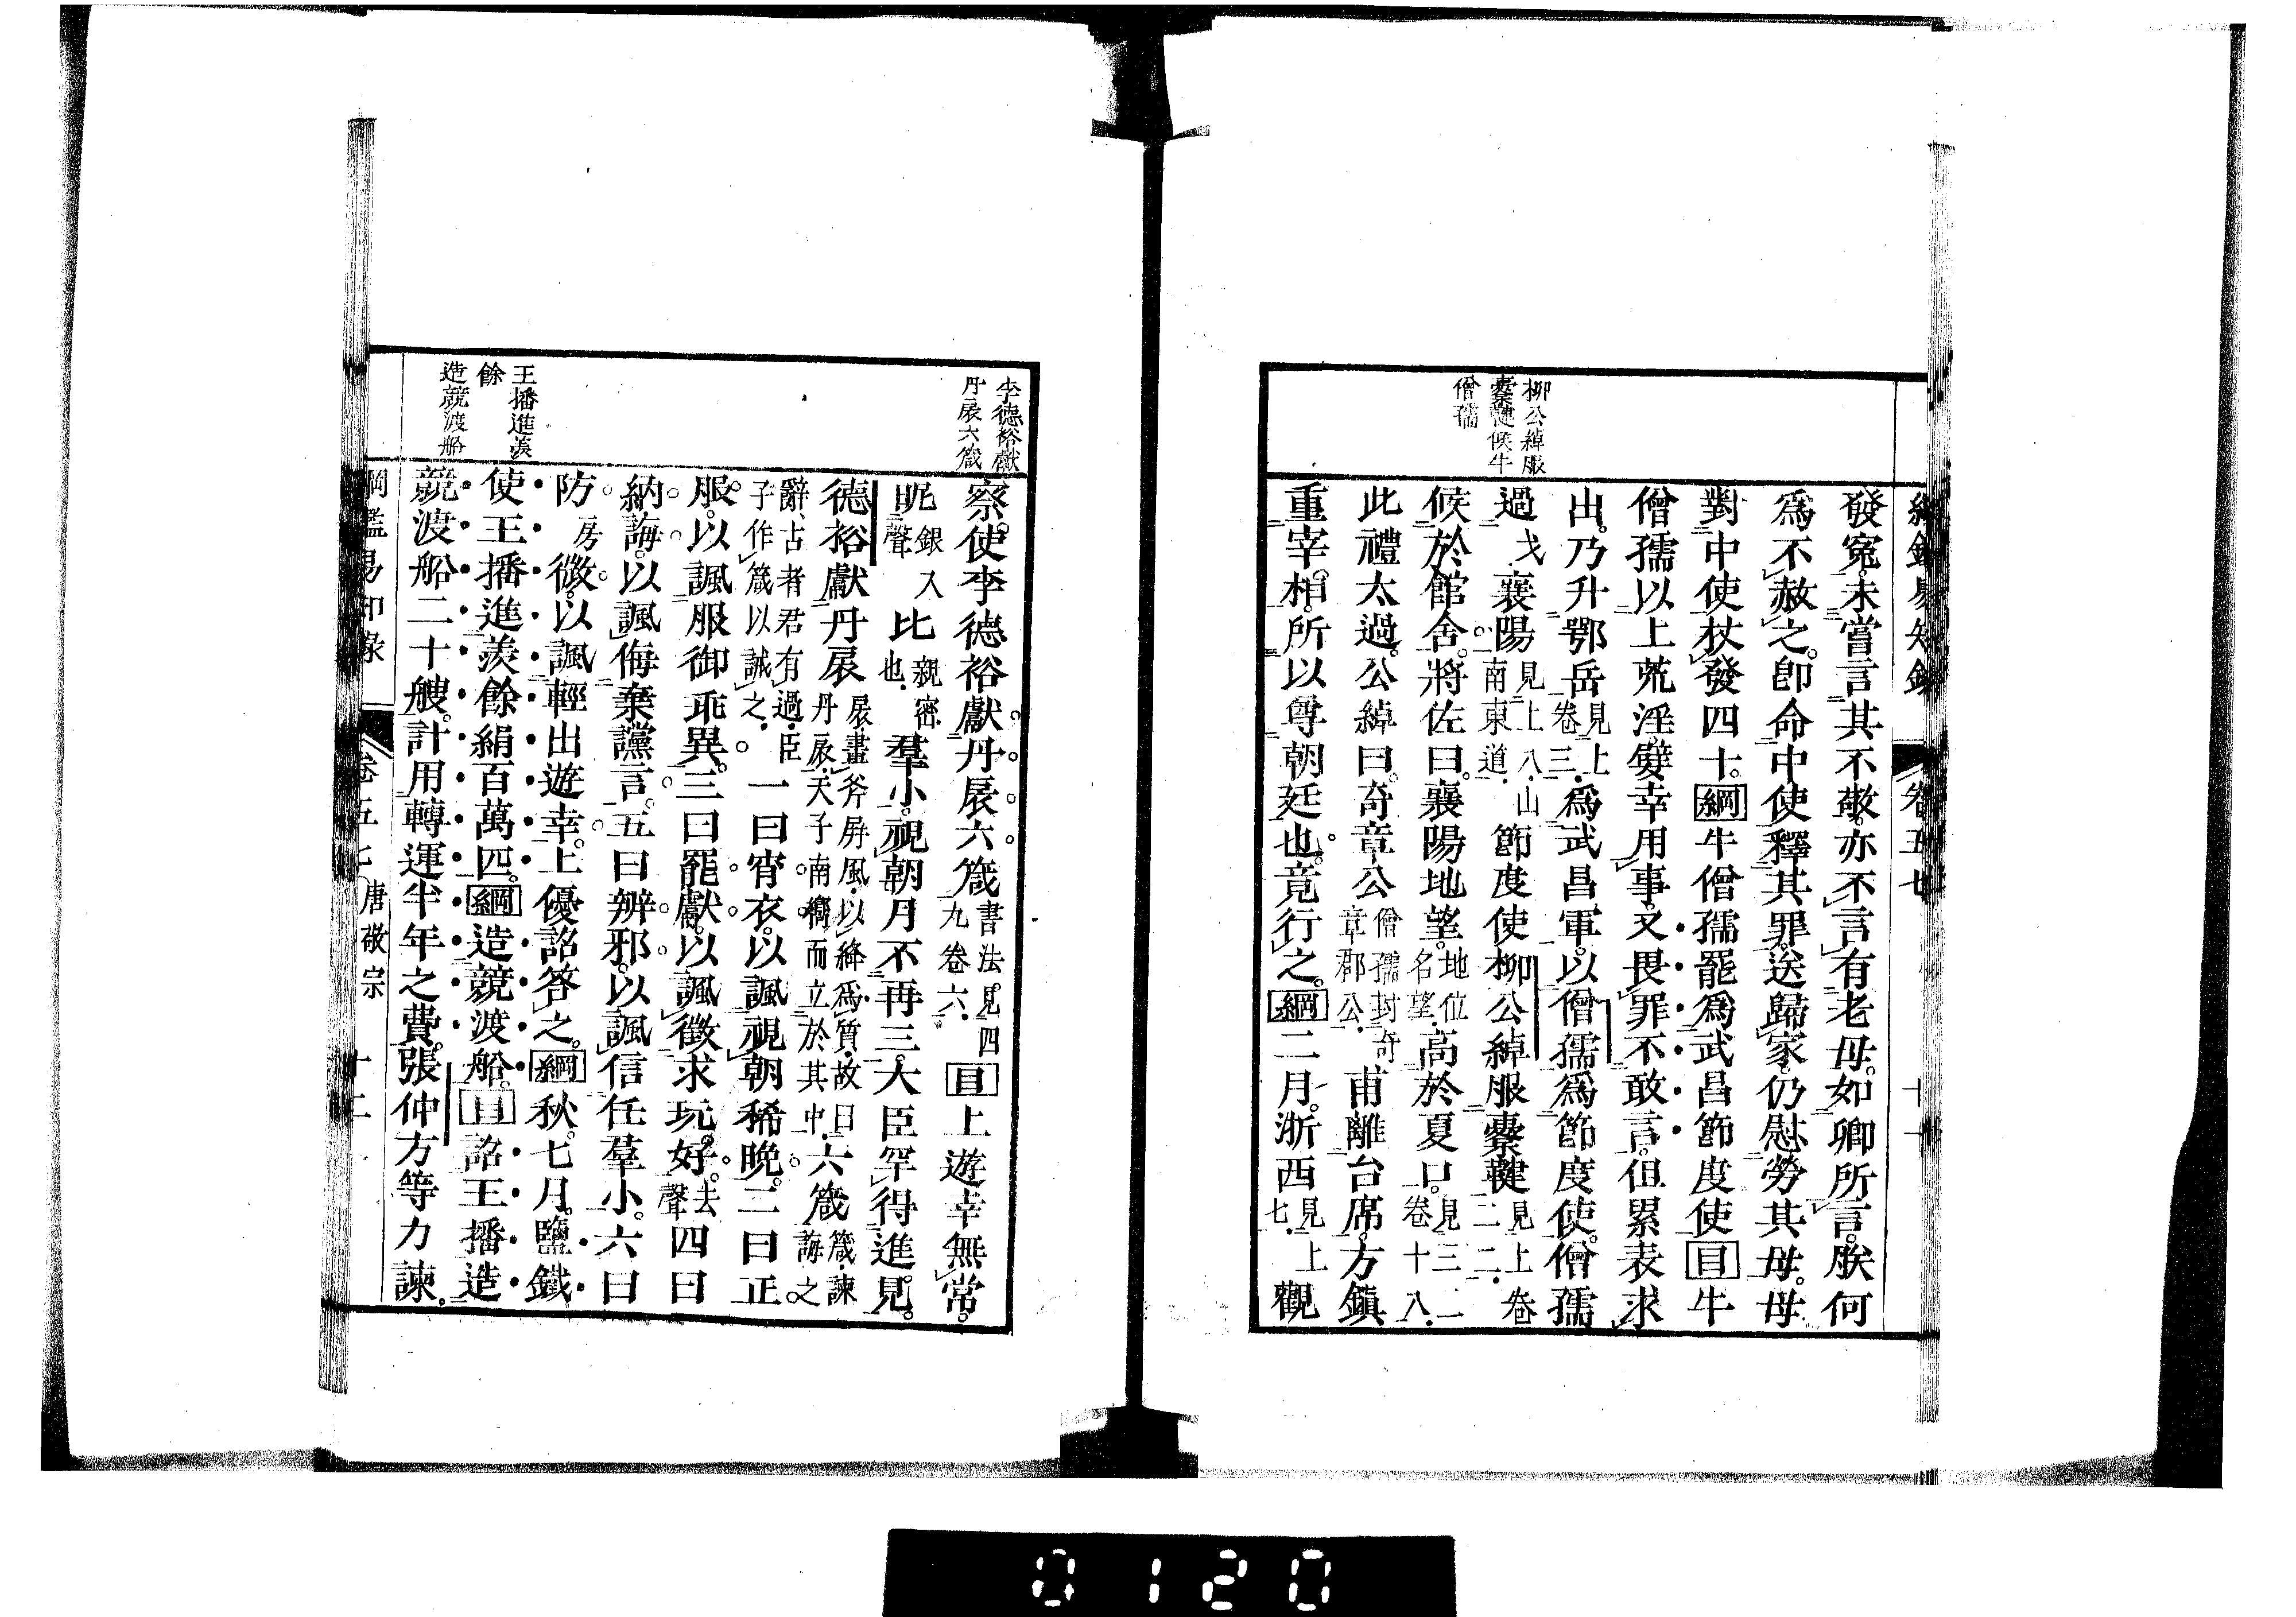 綱鑑易知錄 卷五七 十一
柳公綽服
櫜鞬候牛
僧孺
發冤。未嘗言其不敬。亦不言有老母。如卿所言。朕何
爲不赦之。卽命中使釋其罪。送歸家。仍慰勞其母。母
對中使杖發四十。綱牛僧孺罷爲武昌節度使目牛
僧孺以上荒淫嬖幸用事。又畏罪不敢言。但累表求
出。乃升鄂岳見上卷三.爲武昌軍。以僧孺爲節度使。僧孺
過戈襄陽見上八.山南東道.節度使柳公綽服櫜鞬見上卷二二.
候於館舍。將佐曰。襄陽地望。地位名望.高於夏口。見三二卷十八.
此禮太過。公綽曰。奇章公僧孺封奇章郡公.甫離台席。方鎭
重宰相。所以尊朝廷也。竟行之。綱二月。浙西見上七.觀
李德裕獻
丹扆六箴
察使李德裕獻丹扆六箴書法。見四九卷六.目上遊幸無常。
昵銀入聲比親密也.羣小。視朝月不再三。大臣罕得進見。
德裕獻丹扆扆.畫斧屏風.以絳爲質.故曰丹扆.天子南嚮而立於其中.六箴箴.諫誨之
辭.古者君有過.臣子作箴以誡之.一曰宵衣。以諷視朝稀晚。二曰正
服。以諷服御乖異。三曰罷獻。以諷徵求玩好。去聲四曰
納誨。以諷侮棄讜言。五曰辨邪。以諷信任羣小。六曰
防房微。以諷輕出遊幸。上優詔答之。綱秋。七月。鹽鐵
使王播進羨餘絹百萬匹。綱造競渡船。目詔王播造
競渡船二十艘。計用轉運半年之費。張仲方等力諫。
王播進羨
餘
造競渡船
綱鑑易知錄 卷五七 唐敬宗 十二
0120